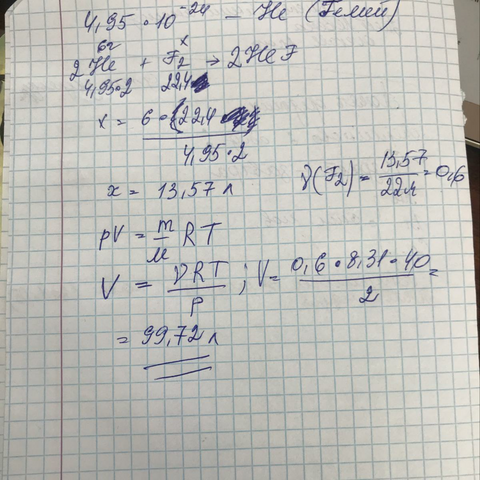 4,95 · 10⁻²⁴ – He (Гелий)
6г x
2He + F₂ → 2HeF
4,95·2 22,4
x = 6 · (22,4
4,95·2
x = 13,57 л
ν(F₂) = 13,57 / 22,4 = 0,6
pV = m/M RT
V = νRT / P ; V = 0,6 · 8,31 · 40 / 2 =
= 99,72 л